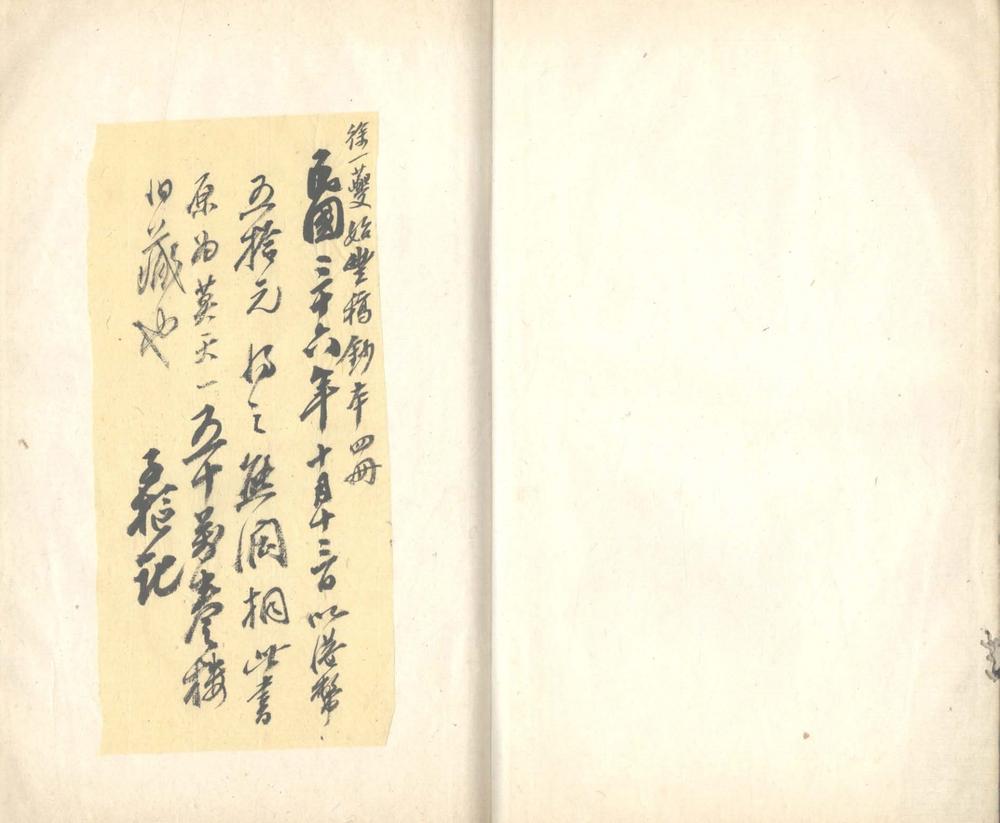 徐一夔始豐稿鈔本四冊
民國三十六年十月十三日以港幣
五拾元得之熊润桐此書
原为莫天一五十萬卷樓
旧藏也
子樞記